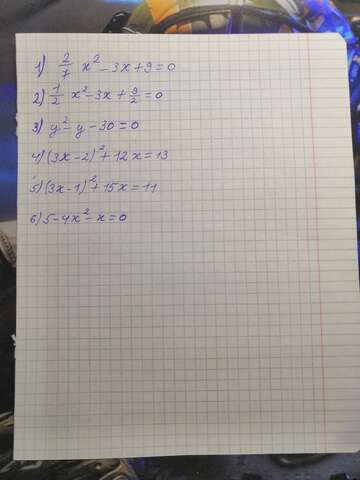 1) 2/7 x² - 3x + 9 = 0
2) 1/2 x² - 3x + 9/2 = 0
3) y² - y - 30 = 0
4) (3x - 2)² + 12x = 13
5) (3x - 1)² + 15x = 11
6) 5 - 4x² - x = 0